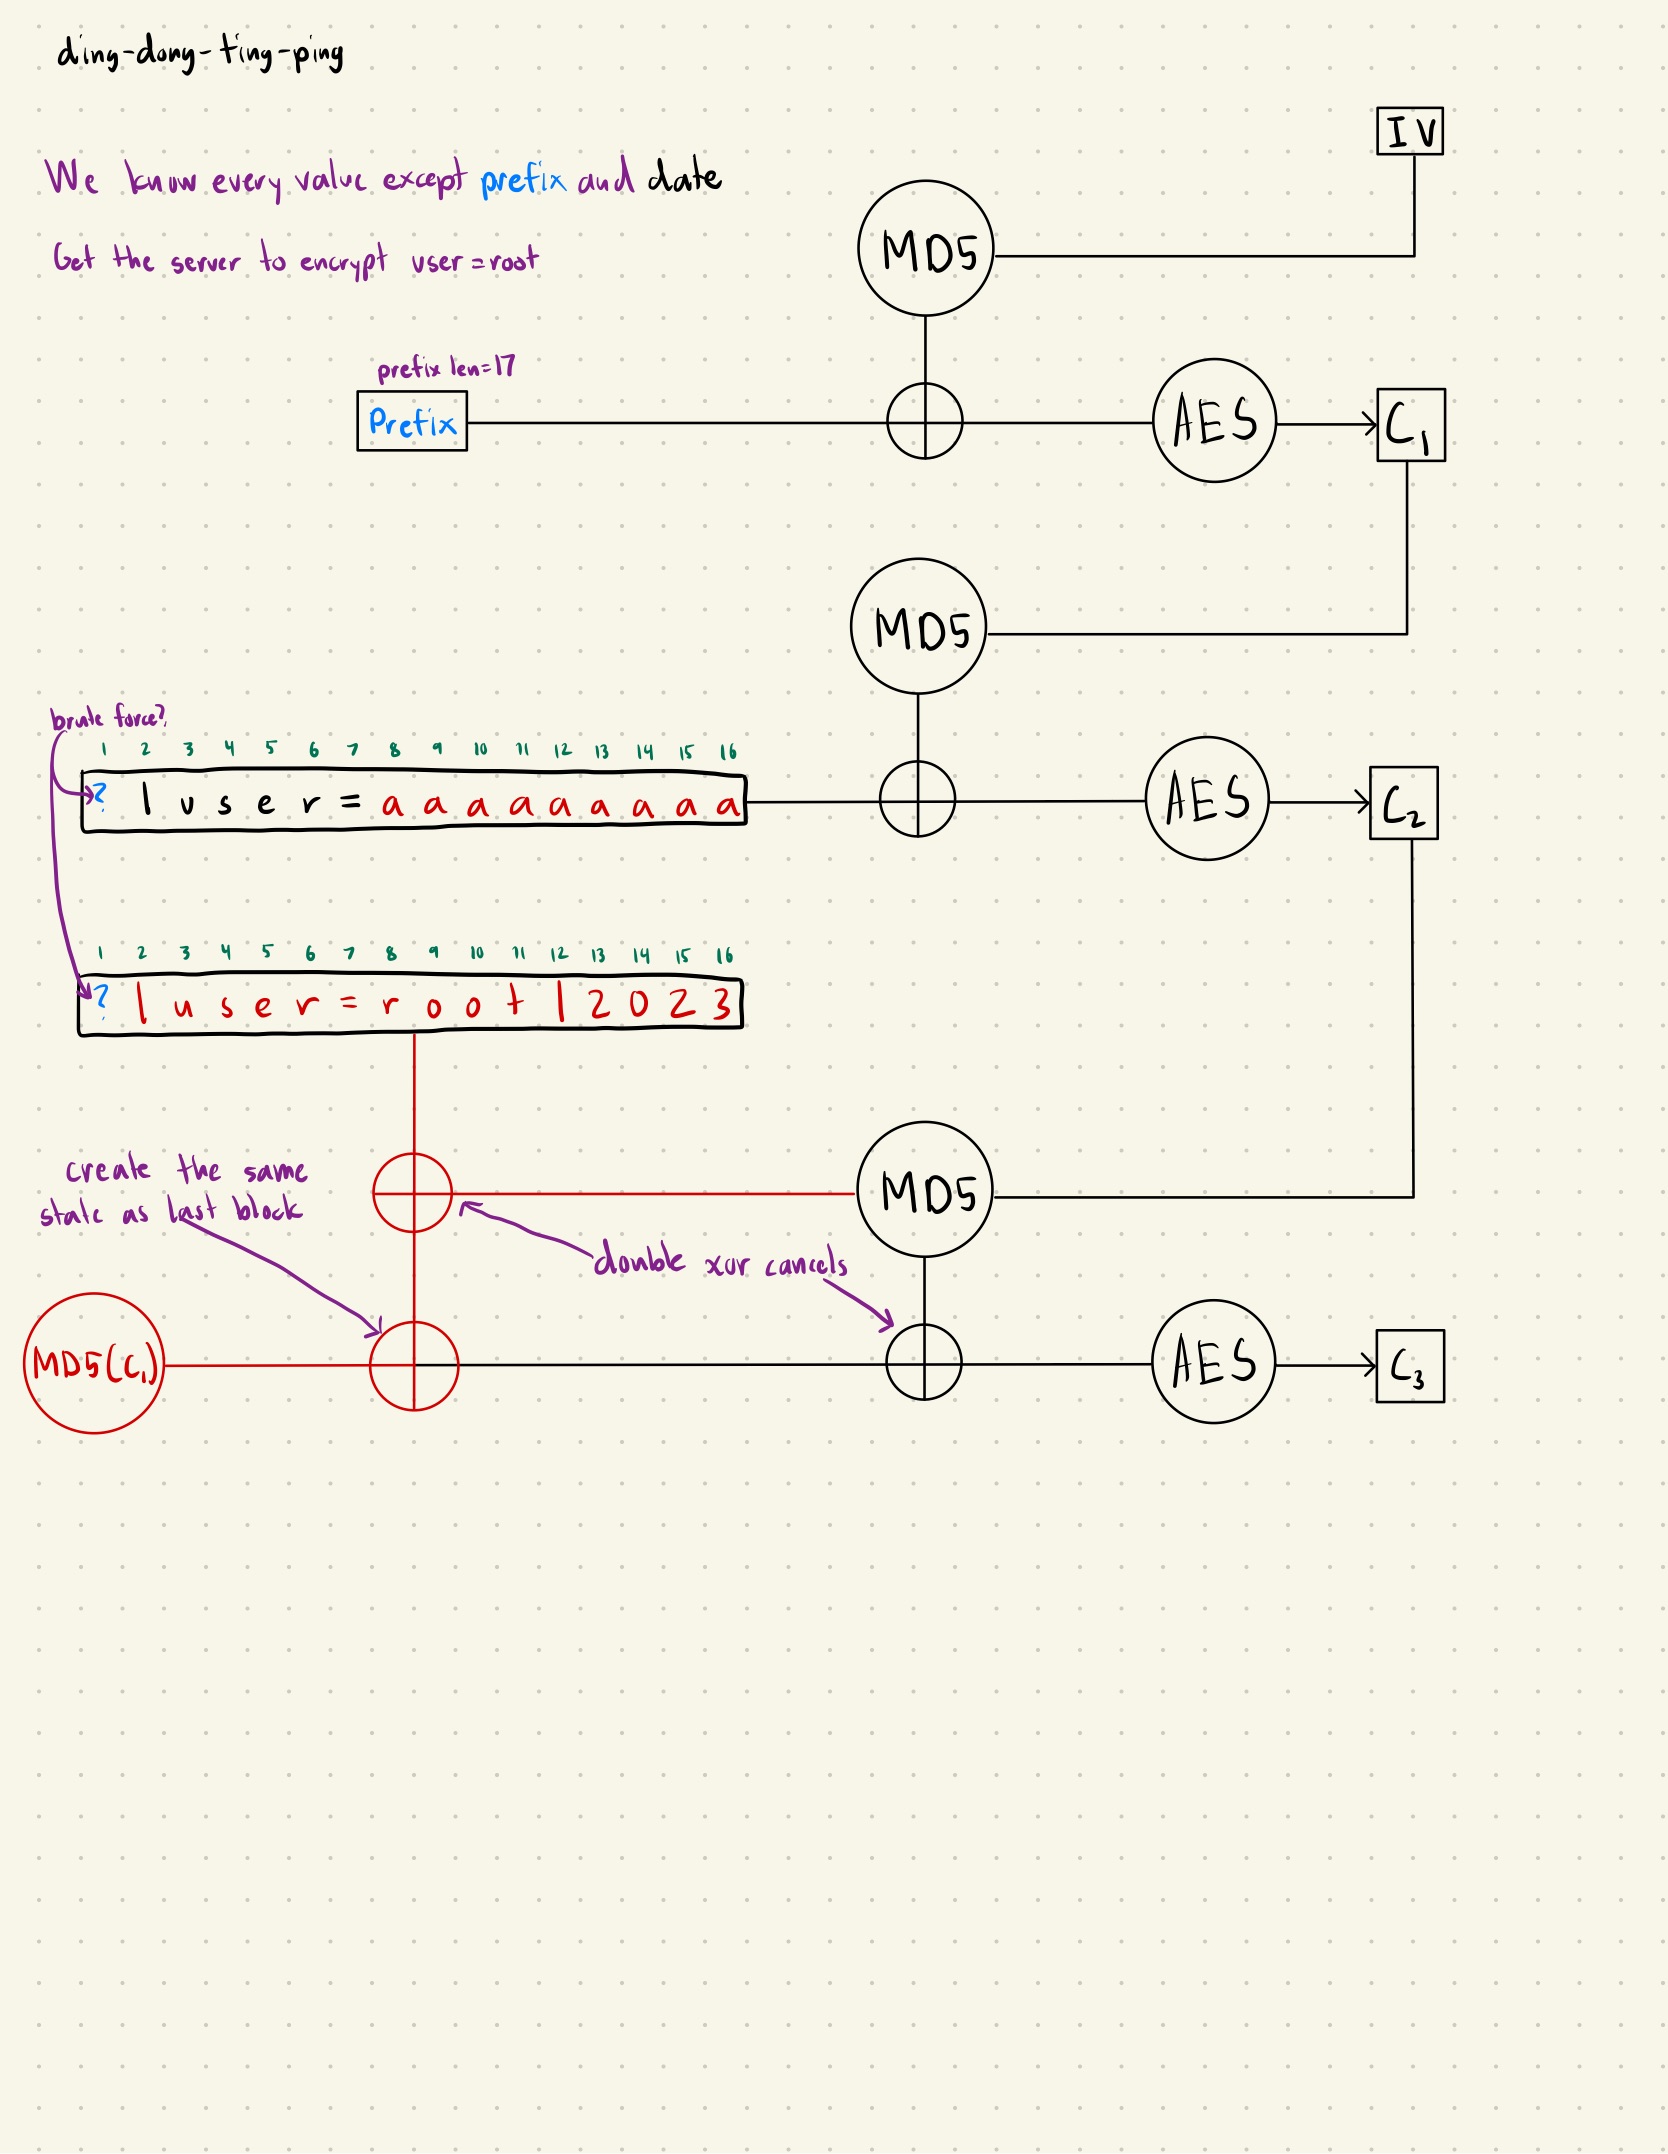 ding-dong-ting-ping
IV
We know every value except prefix and date
MD5
Get the server to encrypt user=root
prefix len=17
Prefix
AES
C1
MD5
brute force?
1 2 3 4 5 6 7 8 9 10 11 12 13 14 15 16
? | u s e r = a a a a a a a a a
AES
C2
1 2 3 4 5 6 7 8 9 10 11 12 13 14 15 16
? | u s e r = r o o t | 2 0 2 3
MD5
create the same
state as last block
double xor cancels
MD5(C1)
AES
C3